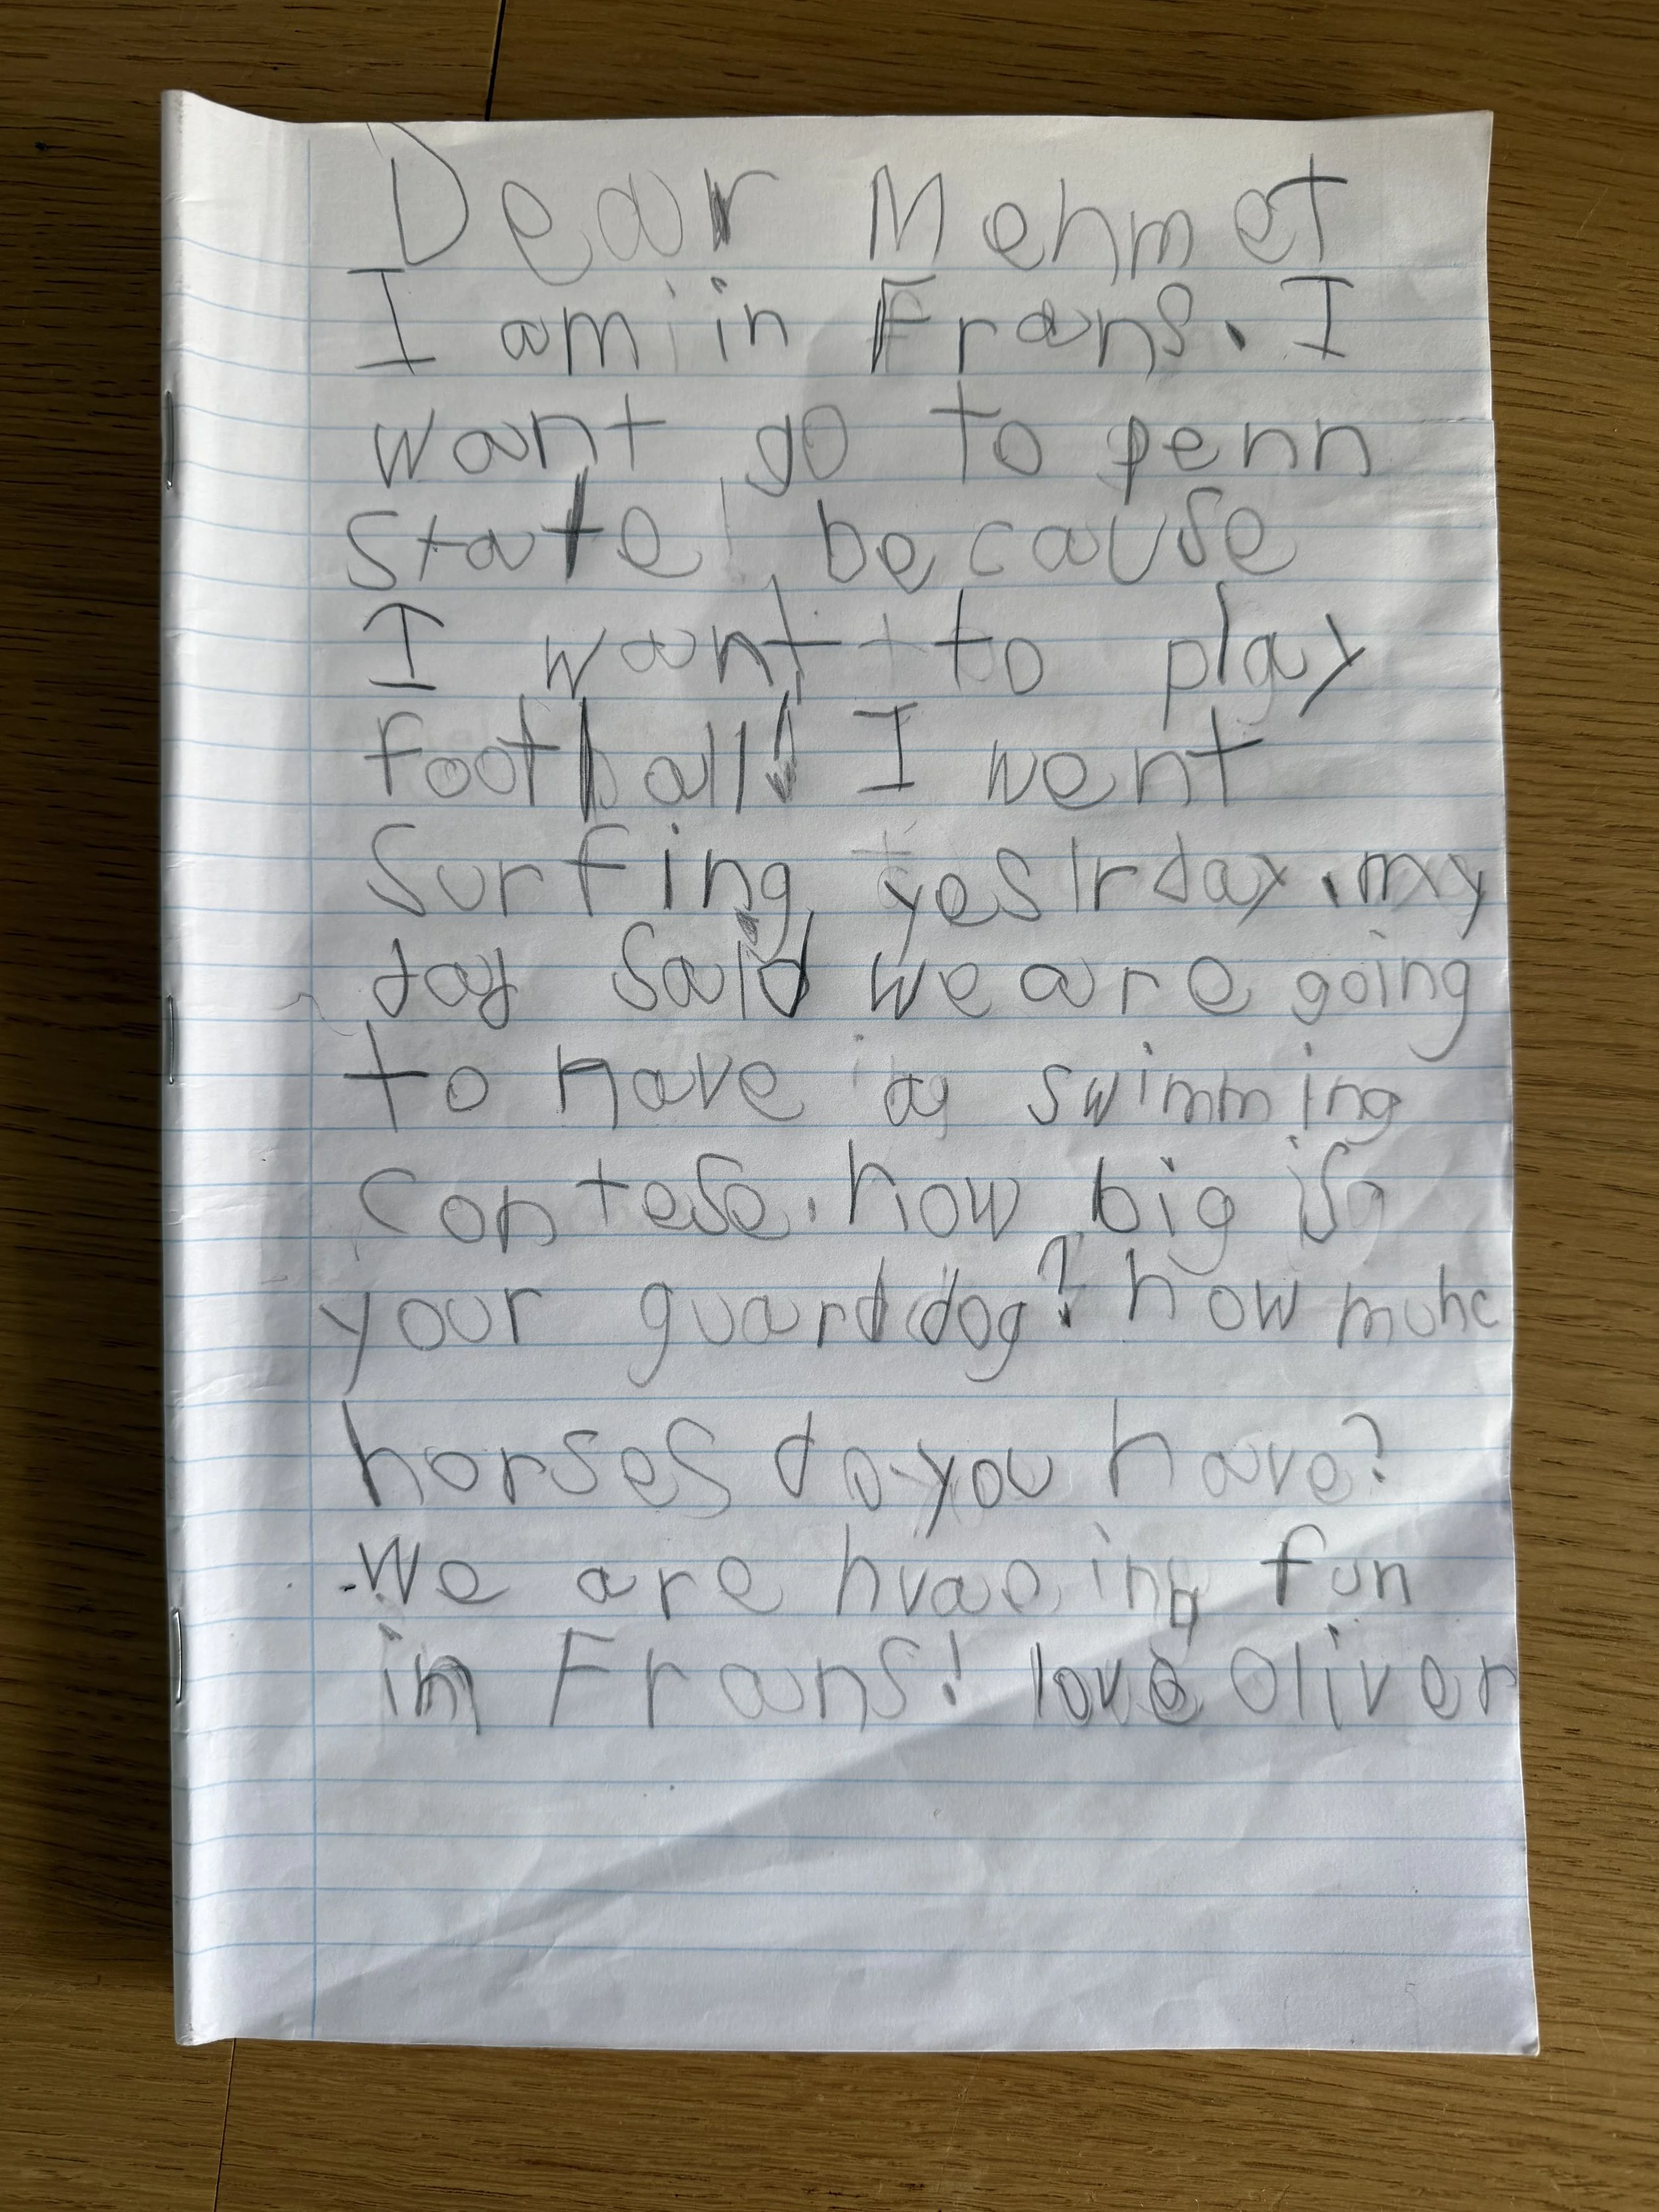 Dear Mehmet
I am in Frans. I
want go to penn
state because
I want to play
football! I went
Surfing yestrday. my
dad Said we are going
to have a swimming
contese. how big is
your guard dog? how muhc
horses do you have?
We are hvaeing fun
in Frans! love Oliver